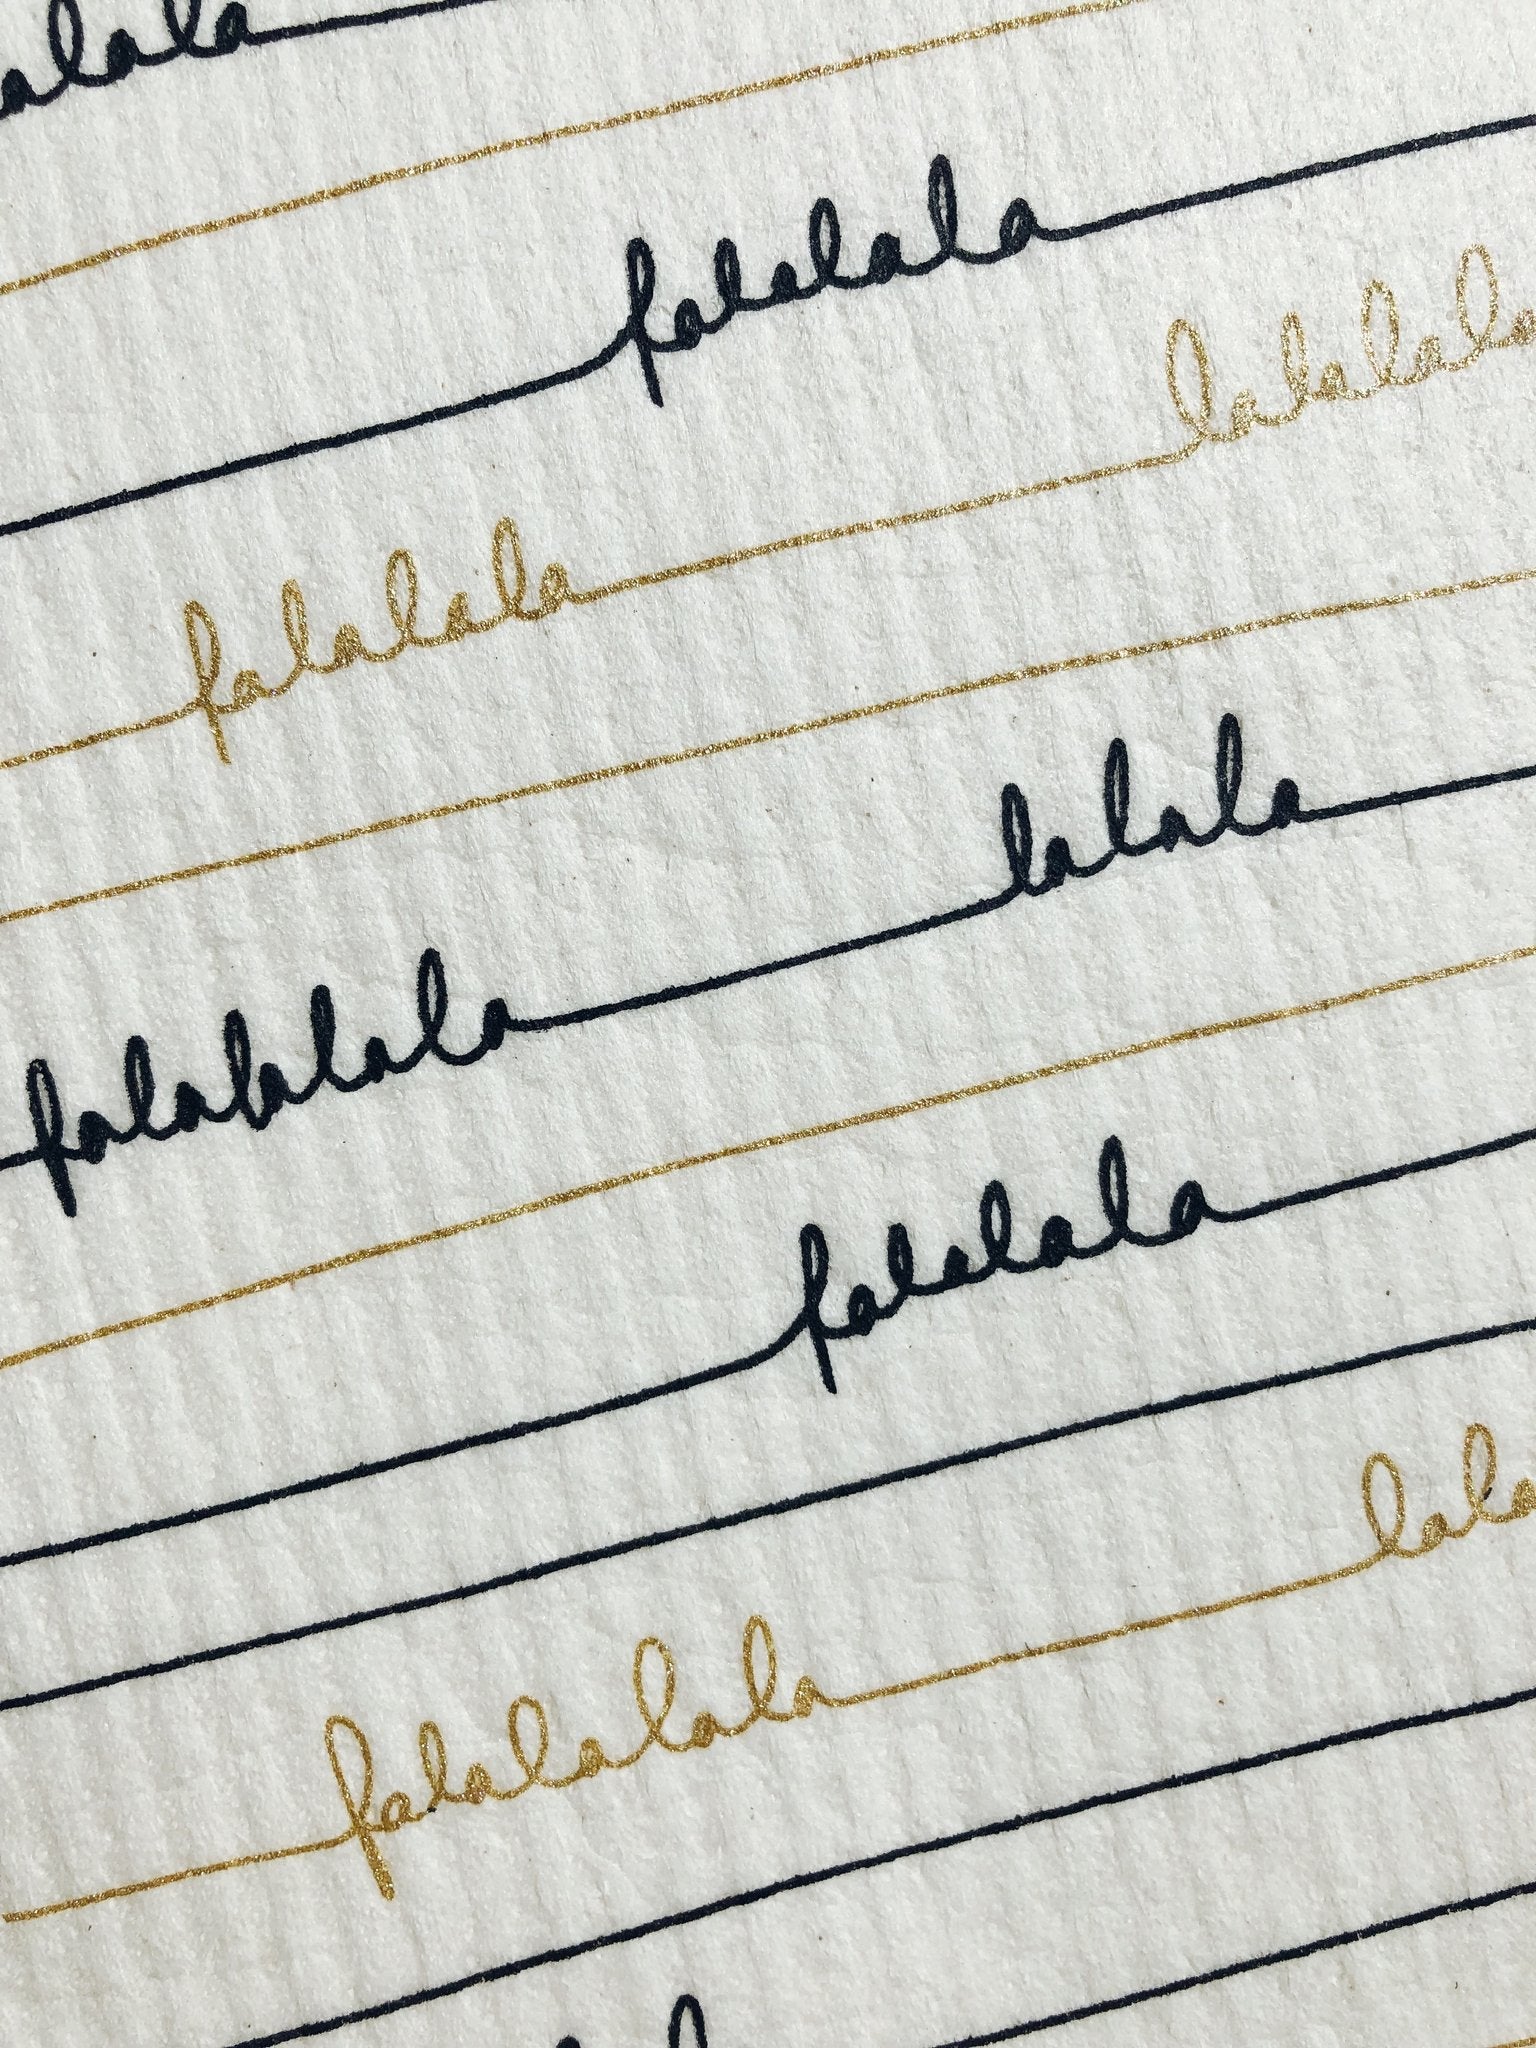 alala
falalala
falalala lalalala
falalalala lalala
falalala
falalalala lala